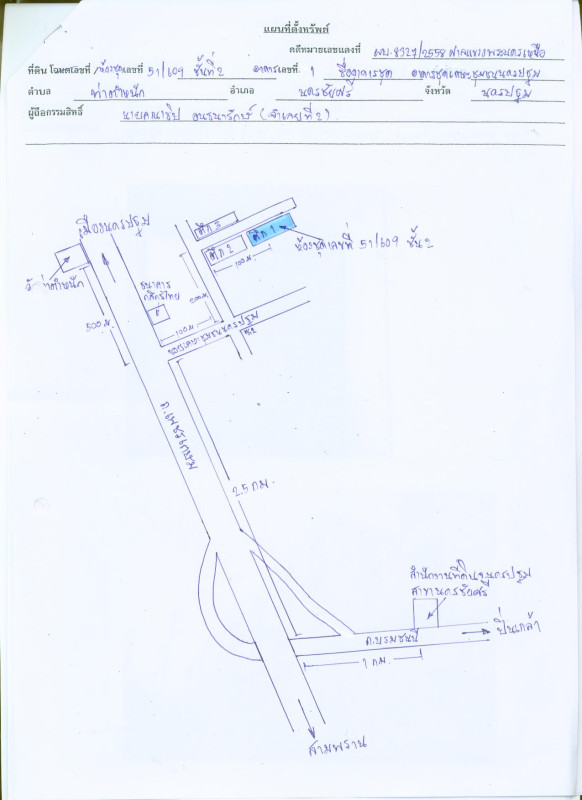 แผนที่ตั้งทรัพย์
คดีหมายเลขแดงที่ ผบ.8327/2558 ศาลแขวงพระนครเหนือ
ที่ดิน โฉนดเลขที่ /ห้องชุดเลขที่ 51/609 ชั้นที่ 2 อาคารเลขที่ 1 ชื่ออาคารชุด อาคารชุดเคหะชุมชนนครปฐม
ตำบล ท่าตำหนัก อำเภอ นครชัยศรี จังหวัด นครปฐม
ผู้ถือกรรมสิทธิ์ นาย (จำเลยที่ 2)
เมืองนครปฐม
ตึก 3
ตึก 2
ตึก 1
ห้องชุดเลขที่ 51/609 ชั้น 2
100 ม.
วัดท่าตำหนัก
ธนาคาร
กสิกรไทย
200 ม.
100 ม.
500 ม.
ซอยเคหะชุมชนนครปฐม
ถ.เพชรเกษม
2.5 กม.
สำนักงานที่ดินจ.นครปฐม
สาขานครชัยศรี
ถ.บรมชนนี
ปิ่นเกล้า
1 กม.
สามพราน